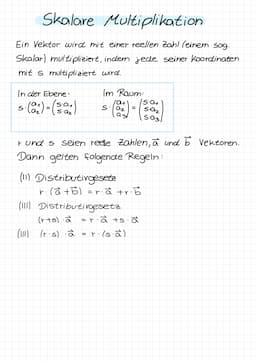 Skalare Multiplikation
Ein Vektor wird mit einer reellen Zahl (einem sog.
Skalar) multipliziert, indem jede seiner Koordinaten
mit s multipliziert wird.
In der Ebene: Im Raum:
s·(a₁ a₂) = (s·a₁ s·a₂) s·(a₁ a₂ a₃) = (s·a₁ s·a₂ s·a₃)
r und s seien reelle Zahlen, a⃗ und b⃗ Vektoren.
Dann gelten folgende Regeln:
(II) Distributivgesetz
r·(a⃗+b⃗) = r·a⃗ + r·b⃗
(III) Distributivgesetz
(r+s)·a⃗ = r·a⃗ + s·a⃗
(III) (r·s)·a⃗ = r·(s·a⃗)